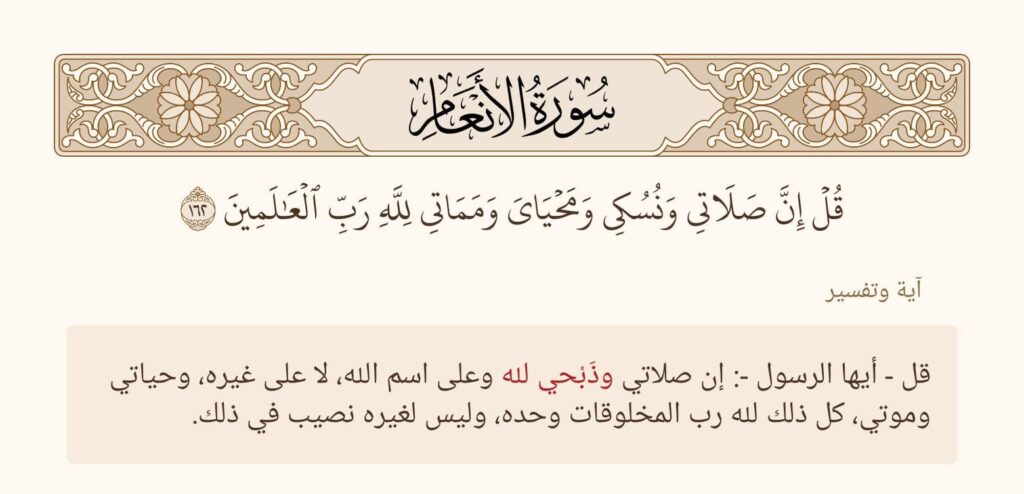 سُورَةُ الأَنْعَامِ
قُلۡ إِنَّ صَلَاتِي وَنُسُكِي وَمَحۡيَايَ وَمَمَاتِي لِلَّهِ رَبِّ ٱلۡعَٰلَمِينَ ١٦٢
آية وتفسير
قل - أيها الرسول -: إن صلاتي وذَبْحي لله وعلى اسم الله، لا على غيره، وحياتي
وموتي، كل ذلك لله رب المخلوقات وحده، وليس لغيره نصيب في ذلك.